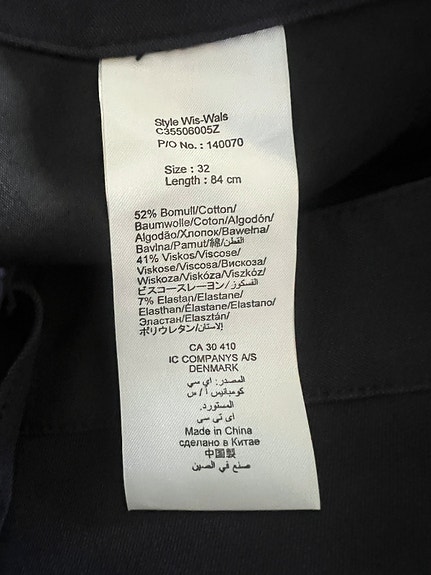 Style Wis-Wals
C35506005Z
P/O No. : 140070
Size : 32
Length : 84 cm
52% Bomull/Cotton/
Baumwolle/Coton/Algodón/
Algodão/Хлопок/Bawełna/
Bavlna/Pamut/綿/القطن/
41% Viskos/Viscose/
Viskose/Viscosa/Вискоза/
Wiskoza/Viskóza/Viszkóz/
ビスコースレーヨン/الفسكوز/
7% Elastan/Elastane/
Elasthan/Élastane/Elastano/
Эластан/Elasztán/
ポリウレタン/الاستان/
CA 30 410
IC COMPANYS A/S
DENMARK
المصدر: اي سي
كومبانيس ا / س
المستورد.
اى تي سي
Made in China
сделано в Китае
中国製
صنع في الصين